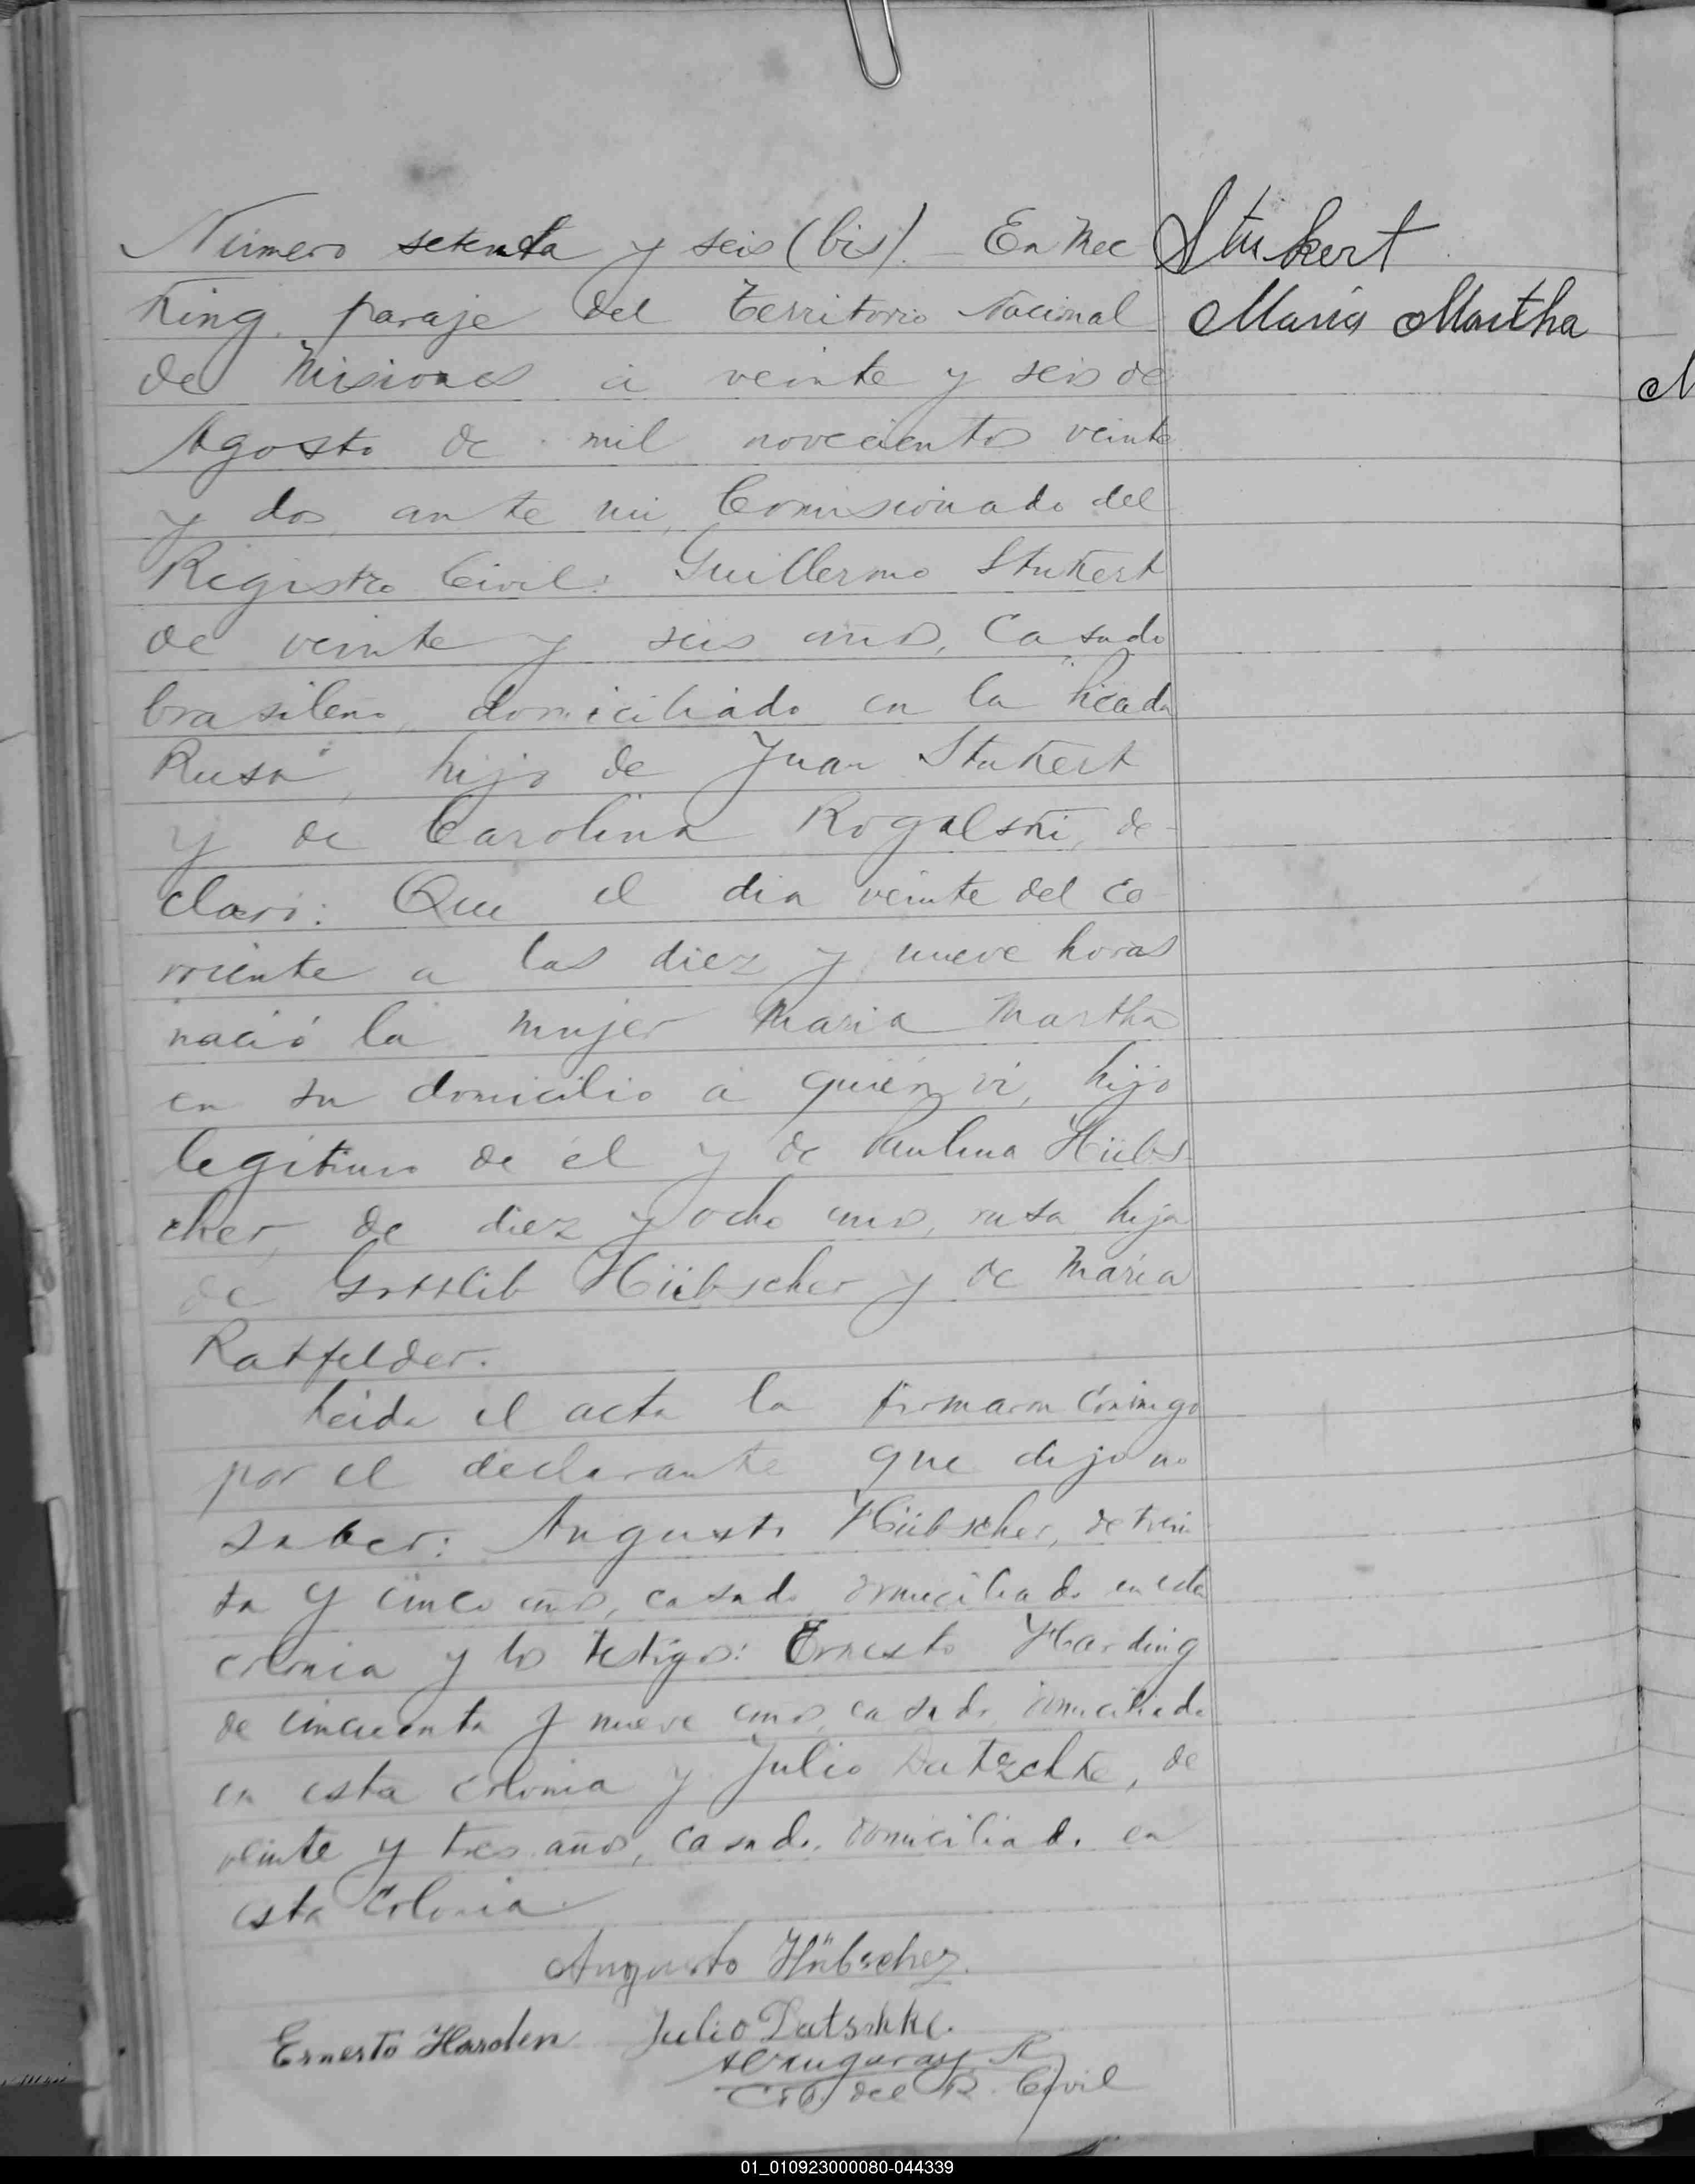 Número setenta y seis (bis). — En Mec
King, paraje del Territorio Nacional
de Misiones á veinte y seis de
Agosto de mil novecientos veinte
y dos, ante mi, Comisionado del
Registro Civil: Guillermo Stukert
de veinte y seis años, casado
brasileño, domiciliado en la "Picada
Rusa", hijo de Juan Stukert
y de Carolina Rogalski, de-
claró: Que el dia veinte del co-
rriente a las diez y nueve horas
nació la mujer Maria Martha
en su domicilio á quién vi, hijo
legítimo de él y de Paulina Hübs
cher, de diez y ocho años, rusa, hija
de Gottlib Hübscher y de María
Ratfelder.
Leida el acta la firmaron conmigo
por el declarante que dijo no
saber: Augusto Hübscher, de trein-
ta y cinco años, casado, domiciliado en esta
colonia y los testigos: Ernesto Harding
de cincuenta y nueve años, casado, domiciliado
en esta colonia y Julio Datzchke, de
veinte y tres años, casado, domiciliado en
esta Colonia.
Augusto Hübscher.
Ernesto Harden Julio Datschke.
Cdo. del R. Civil
Stukert
Maria Martha
M
01_010923000080-044339